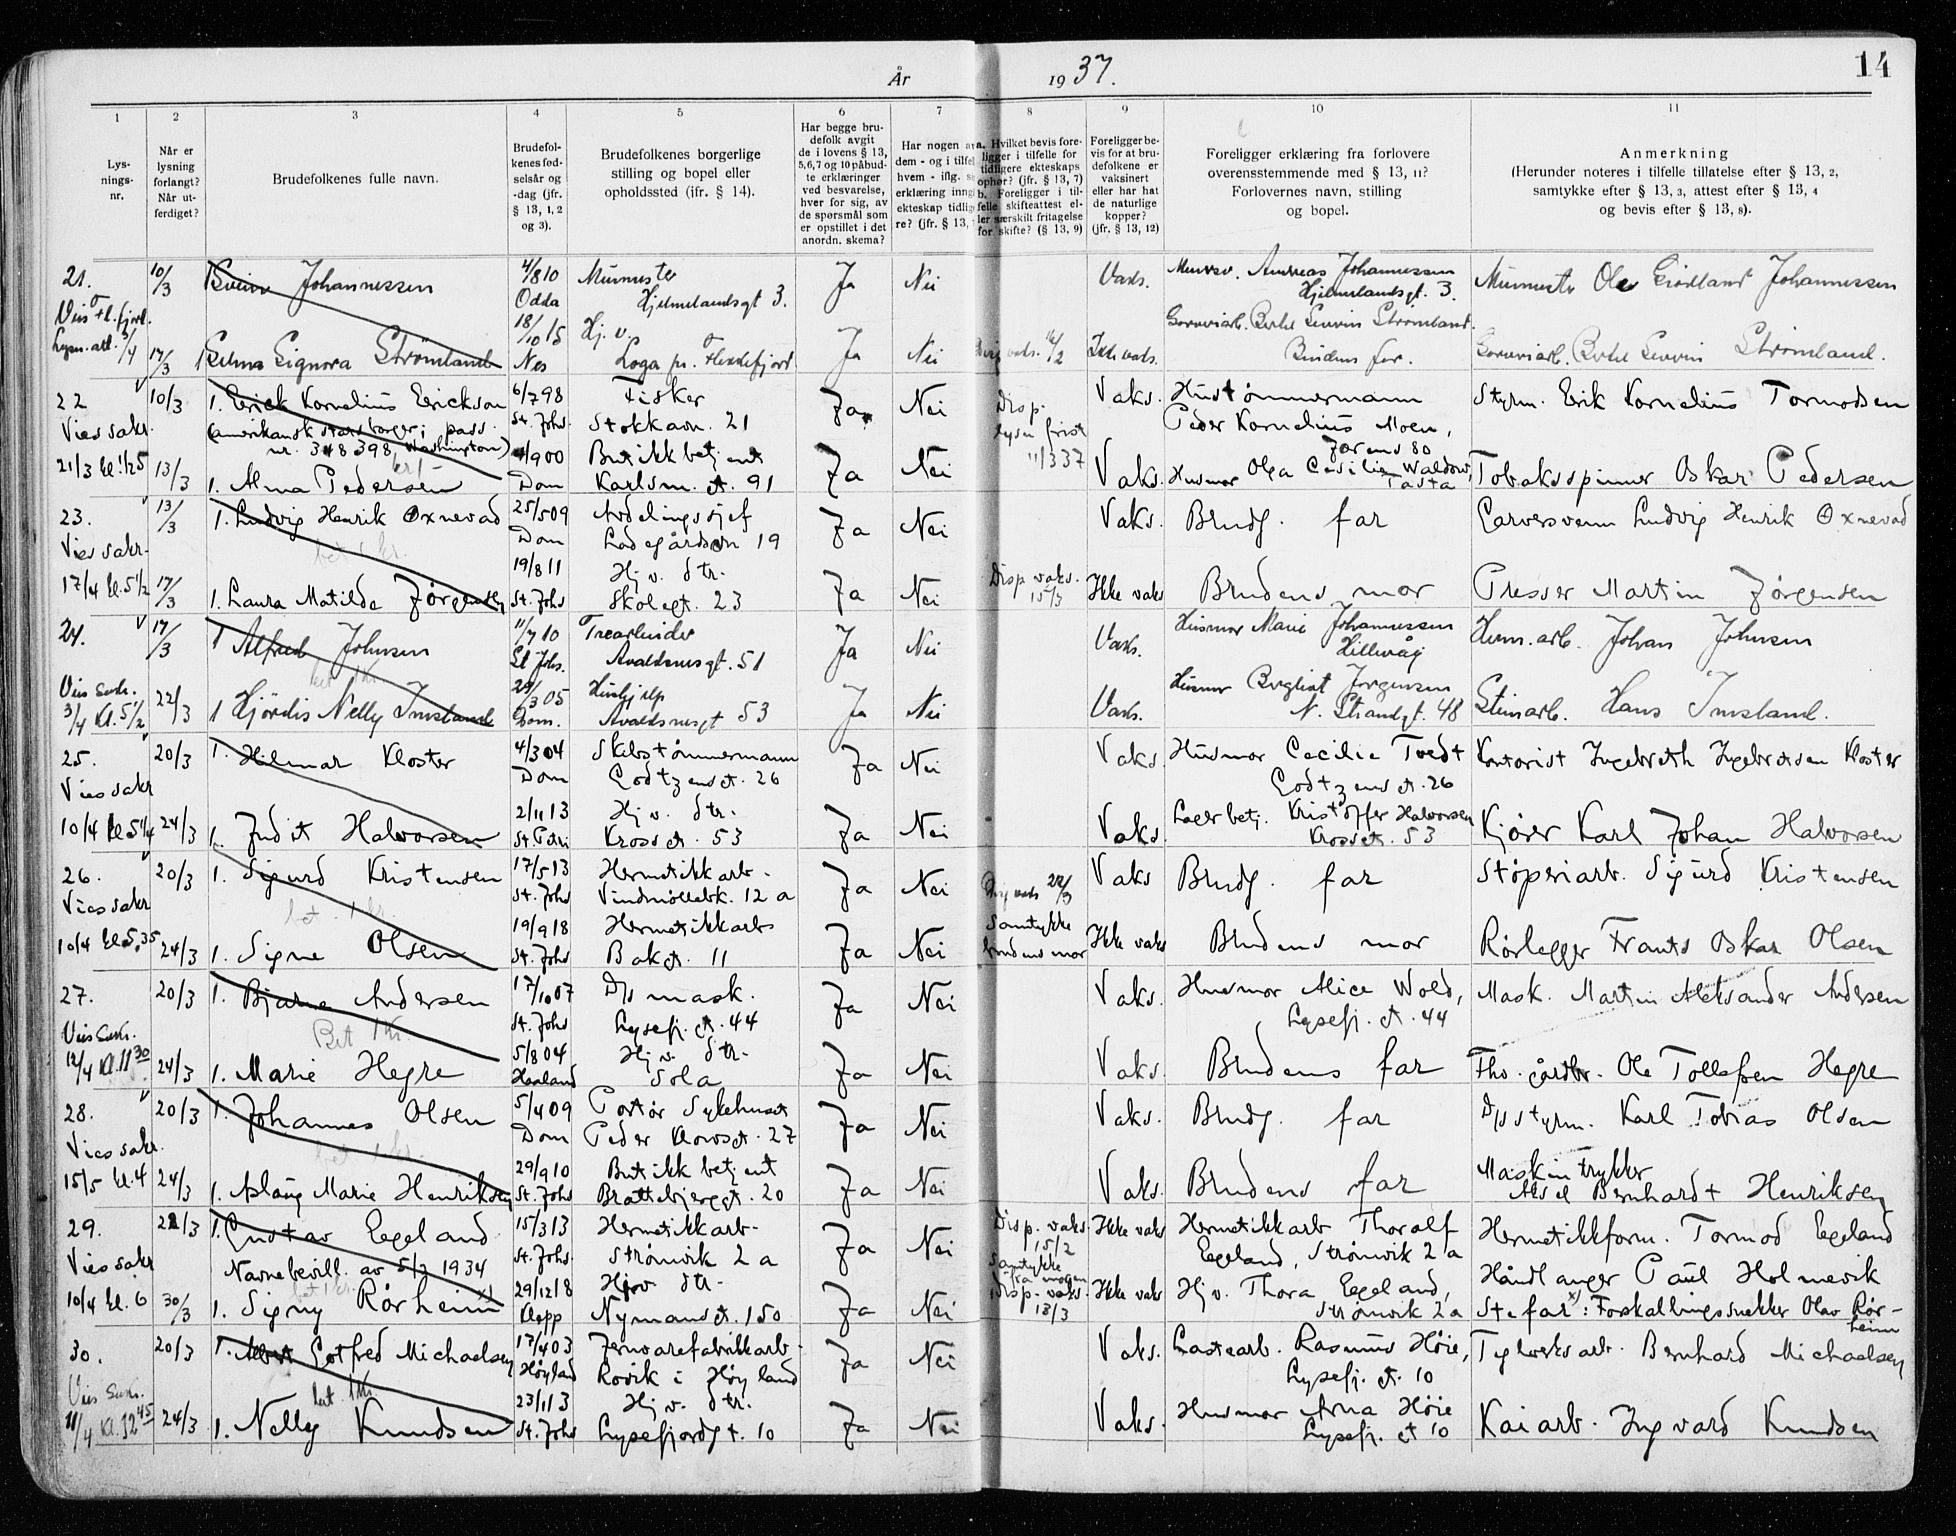 År 1937. 14
1 2 3 4 5 6 7 8 9 10 11
Lys-
nings-
nr.
Når er
lysning
forlangt?
Når ut-
ferdiget?
Brudefolkenes fulle navn.
Brudefol-
kenes fød-
selsår og
-dag (jfr.
§ 13, 1, 2
og 3).
Brudefolkenes borgerlige
stilling og bopel eller
opholdssted (ifr. § 14).
Har begge bru-
defolk avgit
de i lovens § 13,
5, 6, 7 og 10 påbud-
te erklæringer
ved besvarelse,
hver for sig, av
de spørsmål som
er opstillet i det
anordn. skema?
Har nogen av
dem - og i tilfel
hvem - iflg. s
erklæring inng
ekteskap tidlig
re? (jfr. § 13,
a. Hvilket bevis fore-
ligger i tilfelle for
tidligere ekteskaps
ophør? (jfr. § 13, 7)
b. Foreligger i til-
felle skifteattest el-
ler særskilt fritagelse
for skifte? (§ 13, 9)
Foreligger be-
vis for at bru-
defolkene er
vaksinert
eller har hat
de naturlige
kopper?
(jfr. § 13, 12)
Foreligger erklæring fra forlovere
overensstemmende med § 13, 11?
Forlovernes navn, stilling
og bopel.
Anmerkning
(Herunder noteres i tilfelle tillatelse efter § 13, 2,
samtykke efter § 13, 3, attest efter § 13, 4
og bevis efter § 13, 8).
21. 10/3 Johannessen 4/8 10 Odda Murmester Hjelmelandsgt 3. Ja Nei Vaks. Andreas Johannessen Hjelmelandsgt. 3. Johannessen
17/3 Selma Signora Strömland 18/10 15 Nes Hj. v. Loga pr. Flekkefjord Ja Nei 16/2 Ikke vaks. Strömland. Brudens far. Strömland.
22 10/3 1. Erick Kornelius Erickson 6/7 98 St. Johs. Fisker Stokkavn. 21 Ja Nei Disp. lysn frist 11/3 37 Vaks. Hustømmermann Peder Kornelius Moen, Jorens 80 Styrm. Erik Kornelius Tormodsen
Vies sakr. (amerikansk statsborger; pass. nr. 348398, Washington)
21/3 kl. 1.25 13/3 1. Alma Pedersen 4/9 00 Dom Butikkbetjent Karlsm. gt. 91 Ja Nei Vaks. Husmor Olga Cecilie Waldow, Tasta Tobakkspinner Oskar Pedersen
23. 13/3 1. Ludvig Henrik Oxnevad 25/5 09 Dom Avdelingssjef Ladegårdsvn 19 Ja Nei Vaks. Brudg. far Garversvenn Ludvig Henrik Oxnevad
Vies sakr.
17/4 kl. 5 1/2 17/3 1. Laura Matilde Jørgensen 19/8 11 St. Johs Hj v. dtr. Skolegt. 23 Ja Nei Disp vaks. 15/3 Ikke vaks Brudens mor Presser Martin Jørgensen
24. 17/3 1 Alfred Johnsen 11/7 10 St Johs. Trearbeider Avaldsnesgt. 51 Ja Nei Vaks. Husmor Marie Johannessen Hillevåg Herm. arb. Johan Johnsen
Vies Sakr.
3/4 Kl. 5 1/2 22/3 1 Hjördis Nelly Imsland 29/3 05 Dom. Hushjelp Avaldsnesgt 53 Ja Nei Vaks. Husmor Borghild Jorgensen N. Strandgt. 48 Steinarb. Hans Imsland.
25. 20/3 1. Hilmar Kloster 4/3 04 Dom Skibstømmermann Godtzensgt. 26 Ja Nei Vaks Husmor Cecilie Tvedt Godtzensgt. 26 Kontorist Ingebreth Ingebretsen Kloster
Vies sakr
10/4 kl. 5 1/4 24/3 1. Judit Halvorsen 2/11 13 St. Petri Hj v. dtr. Krossgt. 53 Ja Nei Vaks. Lagerbetj. Kristoffer Halvorsen Krossgt. 53 Kjører Karl Johan Halvorsen
26. 20/3 1. Sigurd Kristensen 17/5 13 St. Johs Hermetikkarb. Vindmøllebk. 12 a Ja Nei Vaks Brudg. far Støperiarb. Sigurd Kristensen
Vies sakr bet. 1 kr.
10/4 kl. 5.35 24/3 1. Signe Olsen 19/9 18 St. Johs Hermetikkarb Bakgt. 11 Ja Nei 22/3 Samtykke brudens mor Ikke vaks Brudens mor Rørlegger Frants Oskar Olsen
27. 20/3 1. Bjarne Andersen 17/10 07 St. Johs D/s mask. Lysefj. gt. 44 Ja Nei Vaks. Husmor Alice Wold, Lysefj. gt. 44 Mask. Martin Aleksander Andersen
Vies Sakr. Bet 1 Kr.
12/4 Kl. 11 30 24/3 1. Marie Hegre 5/8 04 Haaland Hj v. dtr. Sola Ja Nei Vaks. Brudens far Fhv. gårdbr. Ole Tollefsen Hegre
28. 20/3 1. Johannes Olsen 5/4 09 Dom Portør Sykehuset Peder Klowsgt. 27 Ja Nei Vaks. Brudg. far D/s styrm. Karl Tobias Olsen
Vies sakr. bet 1 kr.
15/5 kl. 4 24/3 1. Aslaug Marie Henriksen 29/9 10 St. Johs Butikkbetjent Brattebjerggt. 20 Ja Nei Vaks. Brudens far Maskintrykker Aksel Bernhardt Henriksen
29. 1. Gustav Egeland 15/3 13 St. Johs. Hermetikkarb. Strømvik 2 a Ja Nei Disp. vaks. 15/2 Samtykke Ikke vaks Hermetikkarb Thoralf Egeland, Strømvik 2 a Hermetikkform. Tormod Egeland
Vies sakr Navnebevill. av 5/7 1934 bet 1 kr.
10/4 kl. 6 30/3 1. Signy Rørheim x) 29/12 18 Klepp Hj v dtr. Nymansgt. 150 Ja Nei Disp. vaks. 13/3 Ikke vaks Hj v. Thora Egeland, Strømvik 2 a Håndlanger Paul Holmevik Stefar x): Forskallingssnekker Olav Rørheim
30. 20/3 1. Gotfred Michaelsen 17/4 03 Høyland Jernvarefabrikkarb. Rovik i Høyland Ja Nei Vaks. Lastearb. Rasmus Höie, Lysefj. gt. 10 Teglverksarb. Bernhard Michaelsen
Vies Sakr. bet. 1 Kr.
11/4 Kl. 12 45 24/3 1. Nelly Knudsen 23/1 13 St. Johs Hj v. dtr. Lysefjordgt. 10 Ja Nei Vaks. Husmor Anna Höie Lysefj. gt 10 Kaiarb. Ingvard Knudsen